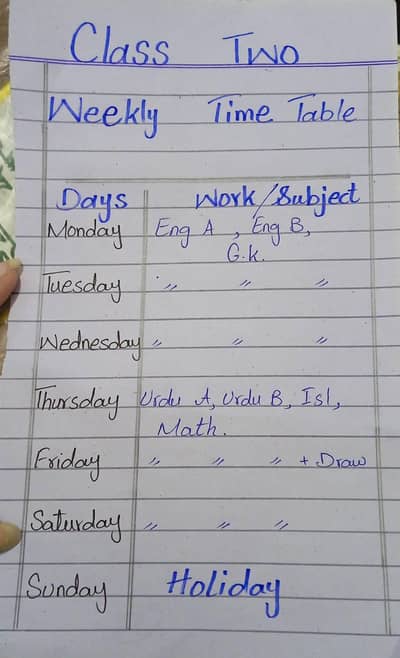 Class Two
Weekly Time Table
Days Work/Subject
Monday Eng A , Eng B,
G.k.
Tuesday " " "
Wednesday " " "
Thursday Urdu A, Urdu B, Isl,
Math.
Friday " " " + Draw
Saturday " " "
Sunday Holiday